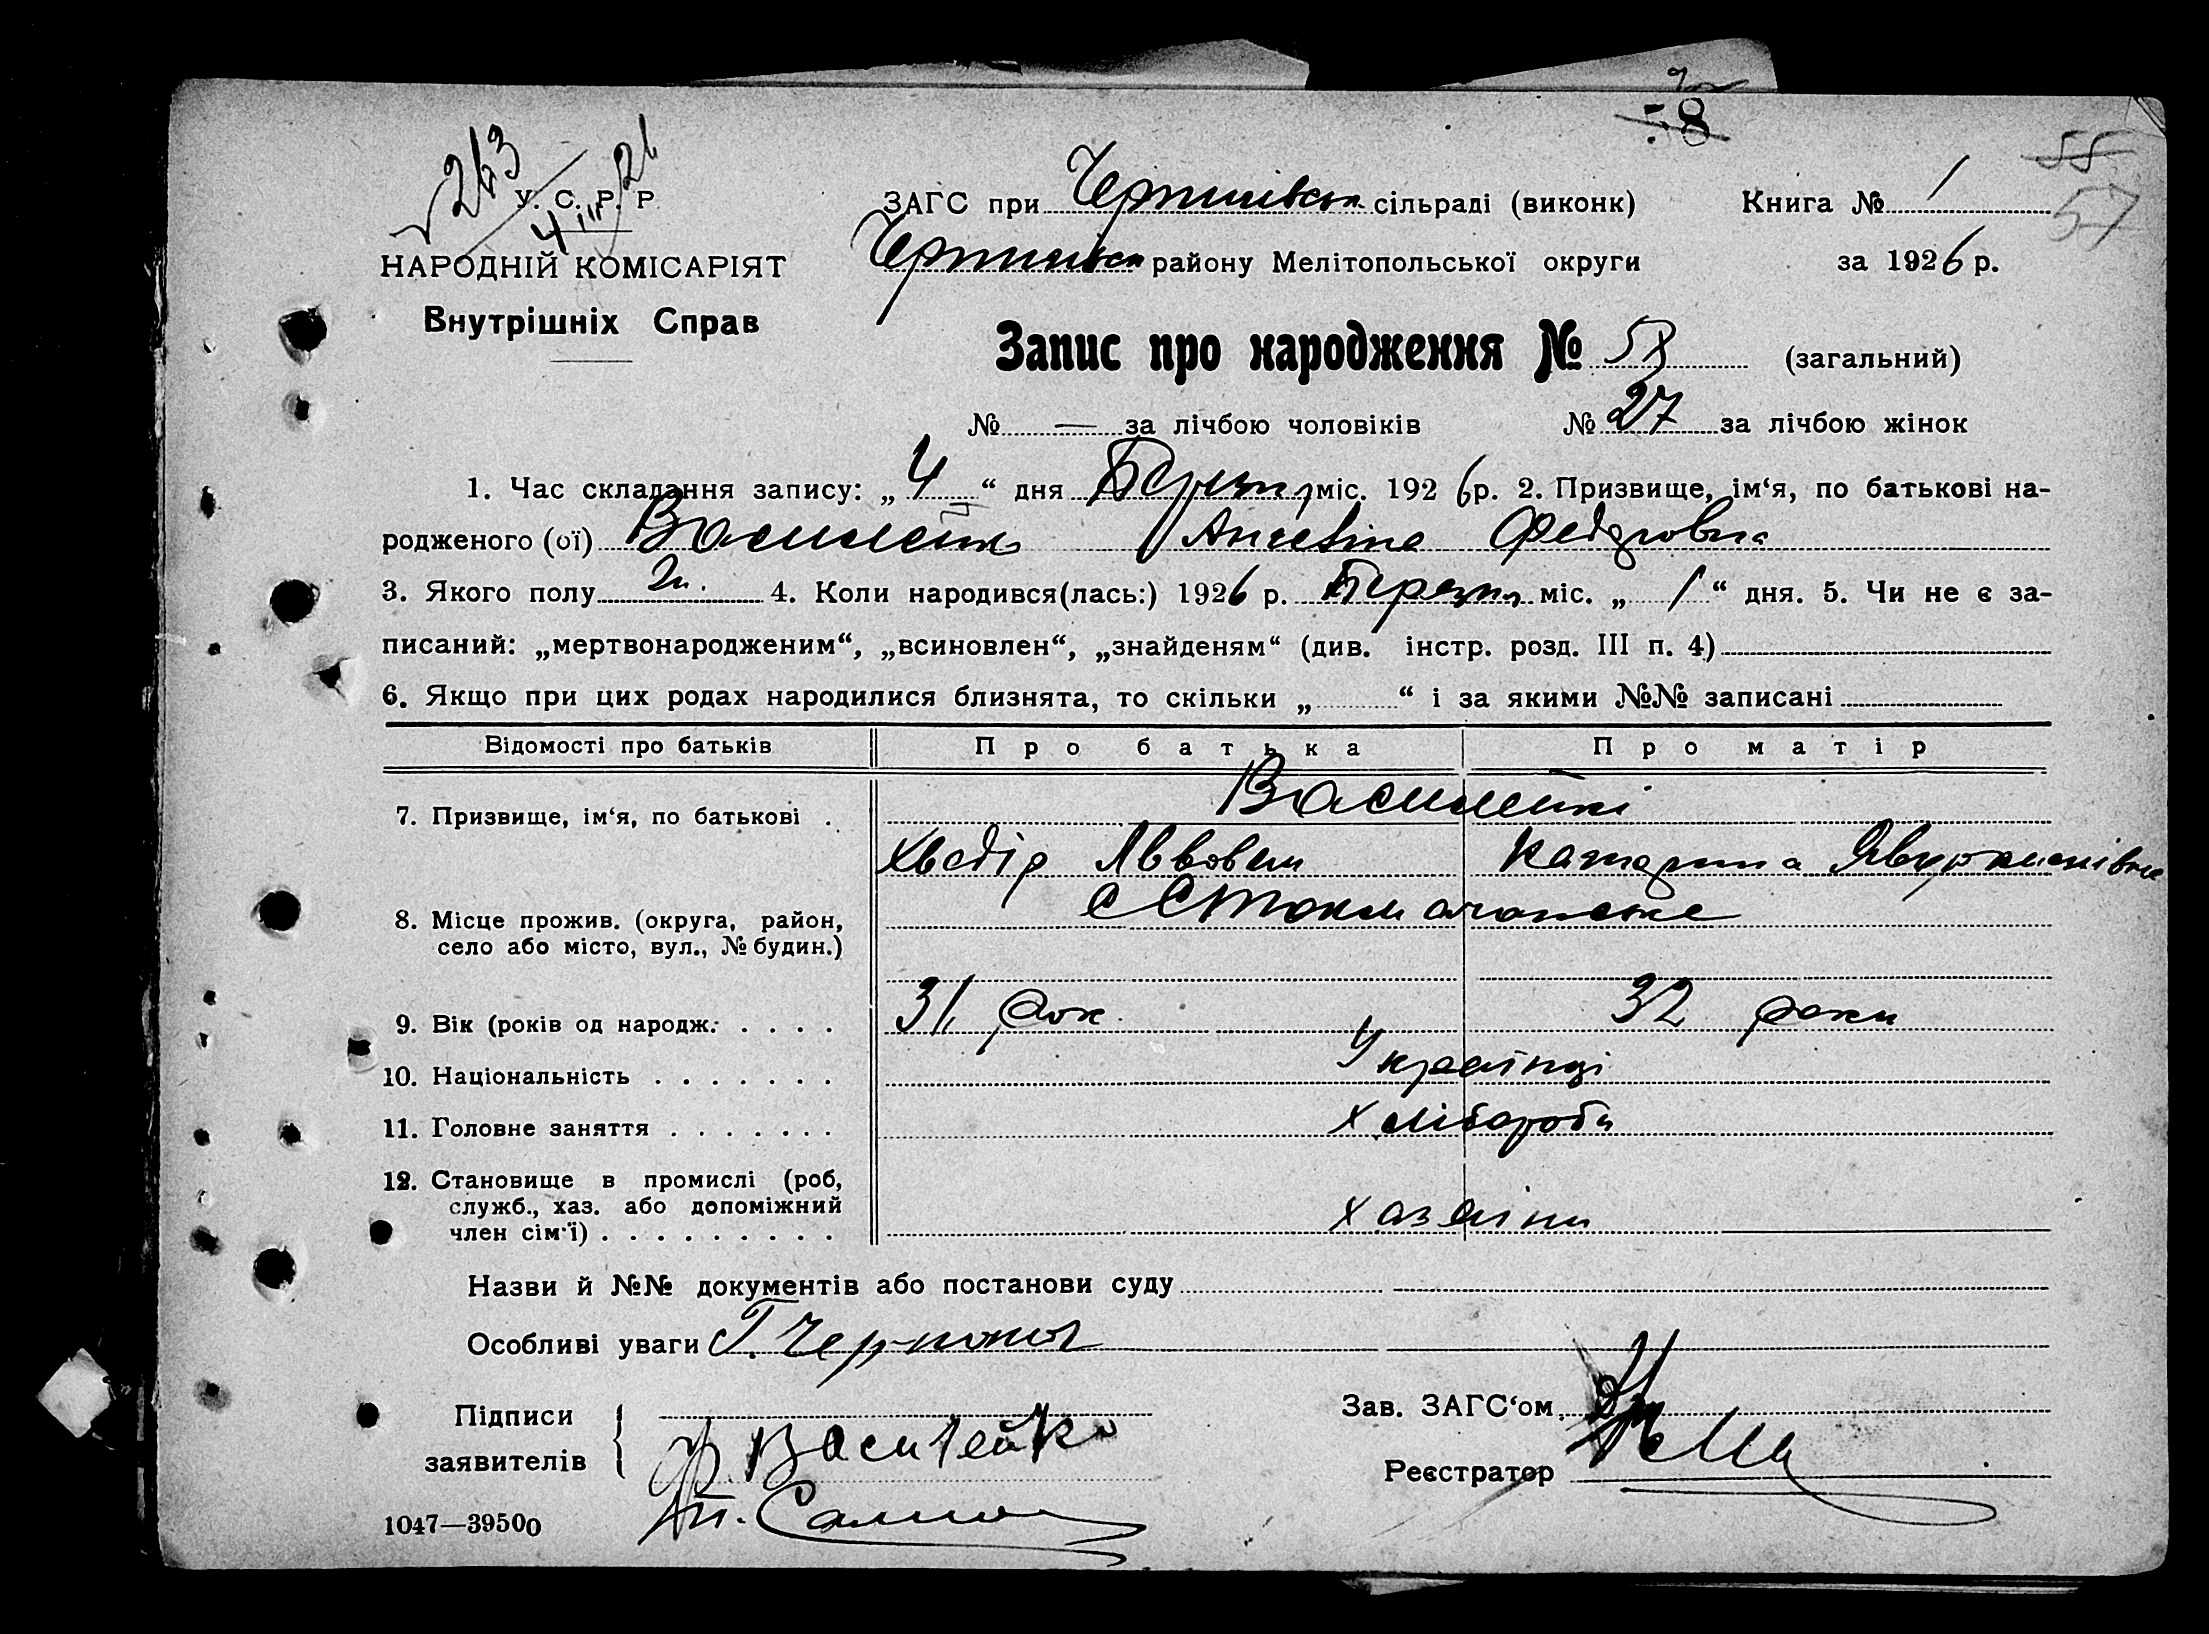 58
263
4 III 26
У. С. Р. Р
НАРОДНІЙ КОМІСАРІЯТ
Внутрішніх Справ
ЗАГС при сільраді (виконк) Книга № 1
55
57
району Мелітопольської округи за 1926 р.
Запис про народження № 58 (загальний)
№ — за лічбою чоловіків № 27 за лічбою жінок
1. Час складання запису: „4“ дня міс. 1926р. 2. Призвище, ім‘я, по батькові на-
родженого (ої) Василейко Федоровна
3. Якого полу 4. Коли народився(лась:) 1926 р. Березня міс. „1“ дня. 5. Чи не є за-
писаний: „мертвонародженим“, „всиновлен“, „знайденям“ (див. інстр. розд. III п. 4)
6. Якщо при цих родах народилися близнята, то скільки „ “ і за якими №№ записані
Відомості про батьків Про батька Про матір
7. Призвище, ім‘я, по батькові . Василейкі
Хведір Катерина
8. Місце прожив. (округа, район,
село або місто, вул., № будин.)
9. Вік (років од народж. . . . . 31 рок 32 роки
10. Національність . . . . . . . Українці
11. Головне заняття . . . . . . . хлібороби
12. Становище в промислі (роб,
служб., хаз. або допоміжний
член сім‘ї) . . . . . . . . . хазяіни
Назви й №№ документів або постанови суду
Особливі уваги
Підписи
заявителів
Ф Василейко
Зав. ЗАГС‘ом
Реєстратор
1047—39500